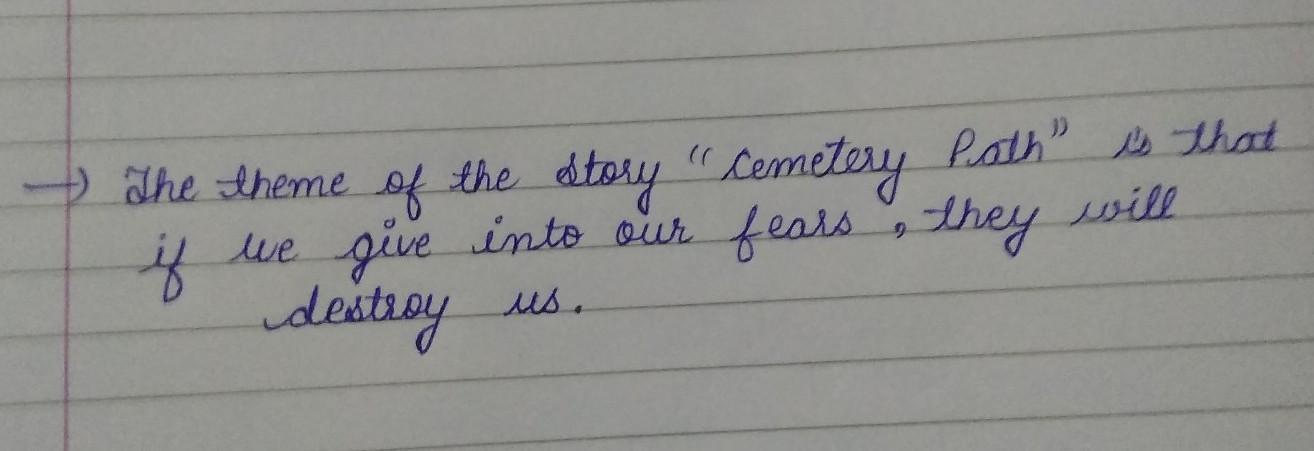 → The theme of the story "Cemetery Path" is that
if we give into our fears, they will
destroy us.